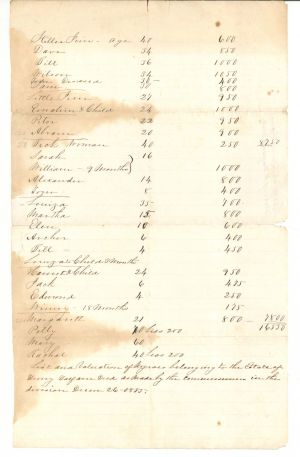 Killis Finn - age 40 600
Dave 34 850
Till 36 1000
Wilson 34 1050
30 400
Sam 30 800
Little Finn 24 950
Emaline & Child 24 1000
Peter 22 950
Abram 20 900
40 250 8750
Sarah 16
William - 9 Months 1000
Alexander 14 800
8 400
Louiza 35 700
Martha 15 800
Elen 10 600
Archer 6 400
Till 4 450
Louiza & Child 8 Months
Harriet & Child 24 950
Jack 6 475
Edmond 4 250
Winny - 18 Months 175
Margarett 21 800 7800
Polly Less 200 16550
Mary 60
Rachel 40 Less 200
List and Valuation of Negroes belonging to the Estate of
Decd as made by the Commissioners in the
division Decm 26-1855.